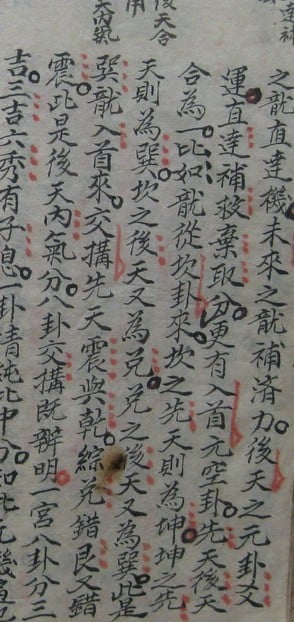 之龍直達機未來之龍補濟力後天之元卦爻
運直達補救棄取分更有入首元空卦先天後天
合為一比如龍從坎卦來坎之先天則為坤坤之先
天則為巽坎之後天又為兌兌之後天又為巽此是
巽龍入首來交搆先天震與乾綜兌錯艮又錯
震此是後天內氣分八卦交搆既辨明一宮八卦分三
吉三吉六秀有子息一卦清純比中分